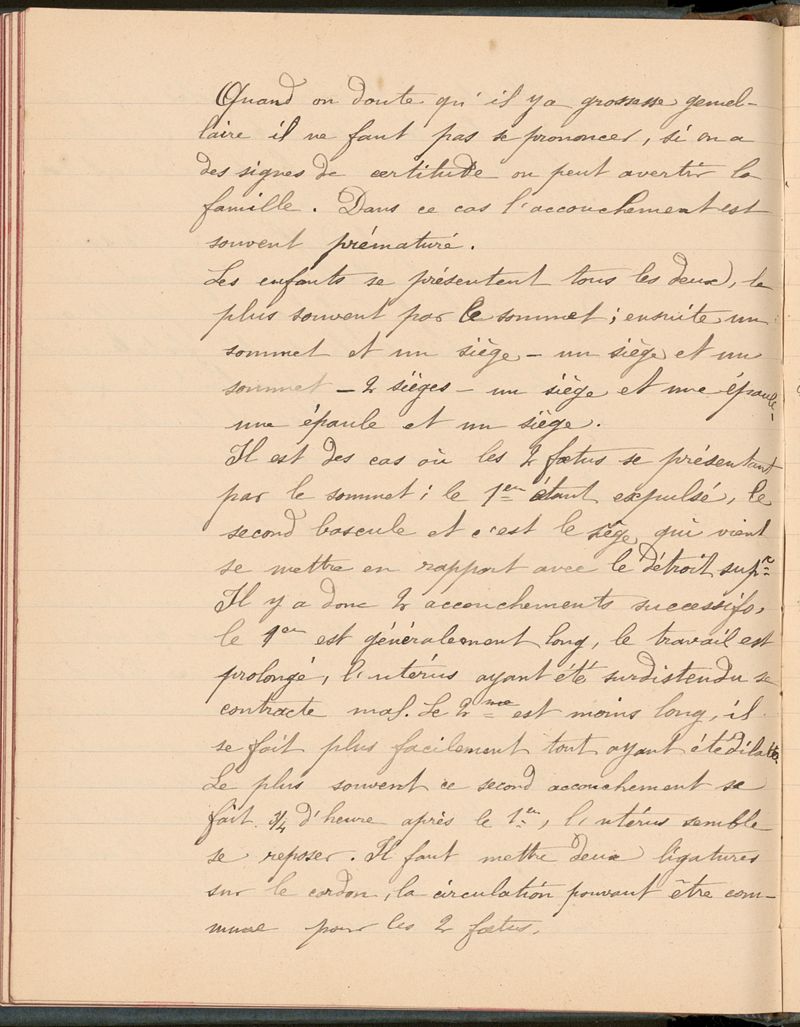 Quand on doute qu'il y a grossesse gemel-
laire il ne faut pas se prononcer, si on a
des signes de certitude on peut avertir la
famille. Dans ce cas l'accouchement est
souvent prématuré.
Les enfants se présentent tous les deux, le
plus souvent par le sommet ; ensuite un
sommet et un siège - un siège et un
sommet - 2 sièges - un siège et une épaule -
une épaule et un siège.
Il est des cas où les 2 fœtus se présentant
par le sommet ; le 1er étant expulsé, le
second bascule et c'est le siège qui vient
se mettre en rapport avec le détroit supr
Il y a donc 2 accouchements successifs,
le 1er est généralement long, le travail est
prolongé, l'utérus ayant été surdistendu se
contracte mal. Le 2me est moins long, il
se fait plus facilement tout ayant été dilaté.
Le plus souvent ce second accouchement se
fait 3/4 d'heure après le 1er, l'utérus semble
se reposer. Il faut mettre deux ligatures
sur le cordon, la circulation pouvant être com-
mune pour les 2 fœtus.